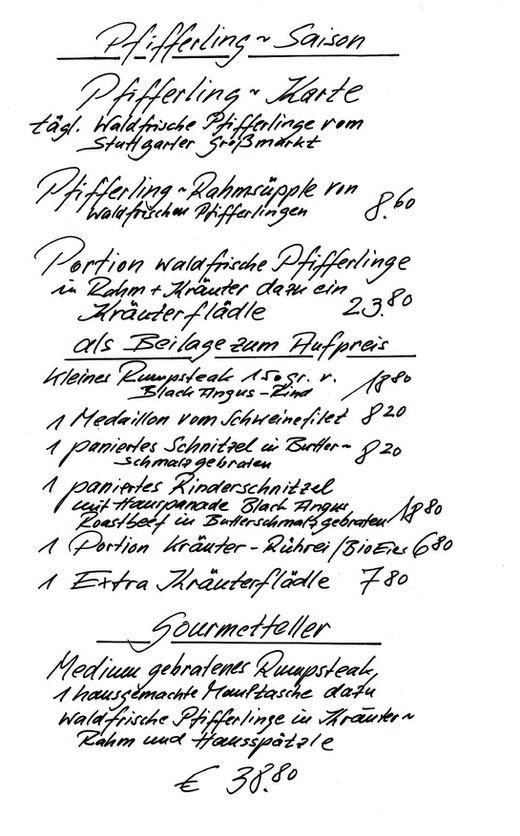 Pfifferling~Saison
Pfifferling~Karte
tägl. Waldfrische Pfifferlinge vom
Stuttgarter Großmarkt
Pfifferling~Rahmsüpple von
Waldfrischen Pfifferlingen 8.60
Portion waldfrische Pfifferlinge
in Rahm + Kräuter dazu ein
Kräuterflädle 23.80
als Beilage zum Aufpreis
Kleines Rumpsteak 150gr. v. 18 80
Black Angus-Rind
1 Medaillon vom Schweinefilet 8 20
1 paniertes Schnitzel in Butter~ 8 20
schmalz gebraten
1 paniertes Rinderschnitzel
mit Hauspanade Black Angus
Roastbeef in Butterschmalz gebraten 18 80
1 Portion Kräuter-Rührei/BioEier 6 80
1 Extra Kräuterflädle 7 80
Gourmetteller
Medium gebratenes Rumpsteak,
1 hausgemachte Maultasche dazu
Waldfrische Pfifferlinge in Kräuter~
Rahm und Hausspätzle
€ 38.80